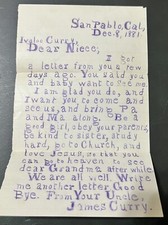 San Pablo, Cal,
Dec. 8, 1881.
Curry,
Dear Niece,
I got
a letter from you a few
days ago. You said you
and baby want to see me
I am glad you do, and
I want you to come and
see us, and bring Pa
and Ma along. Be a
good girl, obey your parents,
be kind to sister, study
hard, go to Church, and
love Jesus, so that you
can go to heaven to see
dear Grandma after while
We are all well. Write
me another letter. Good
Bye. From Your Uncle,
James Curry.